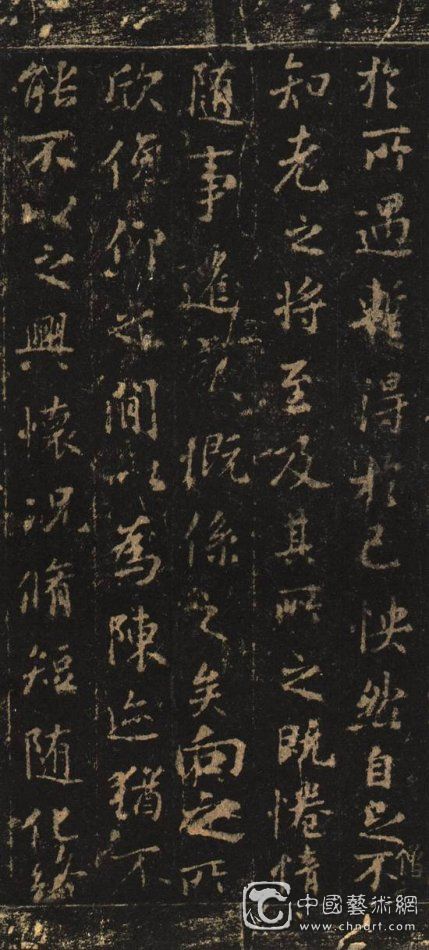 於所遇蹔得於己怏然自足不
知老之将至及其所之既惓情
随事遷感慨係之矣向之所
欣俛仰之閒以為陳迹猶不
能不以之興懷況脩短随化終
中國藝術網
www.chnart.com